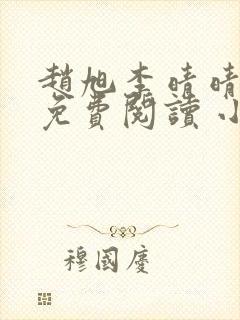 趙旭李晴晴
免費閱讀小
穆國慶